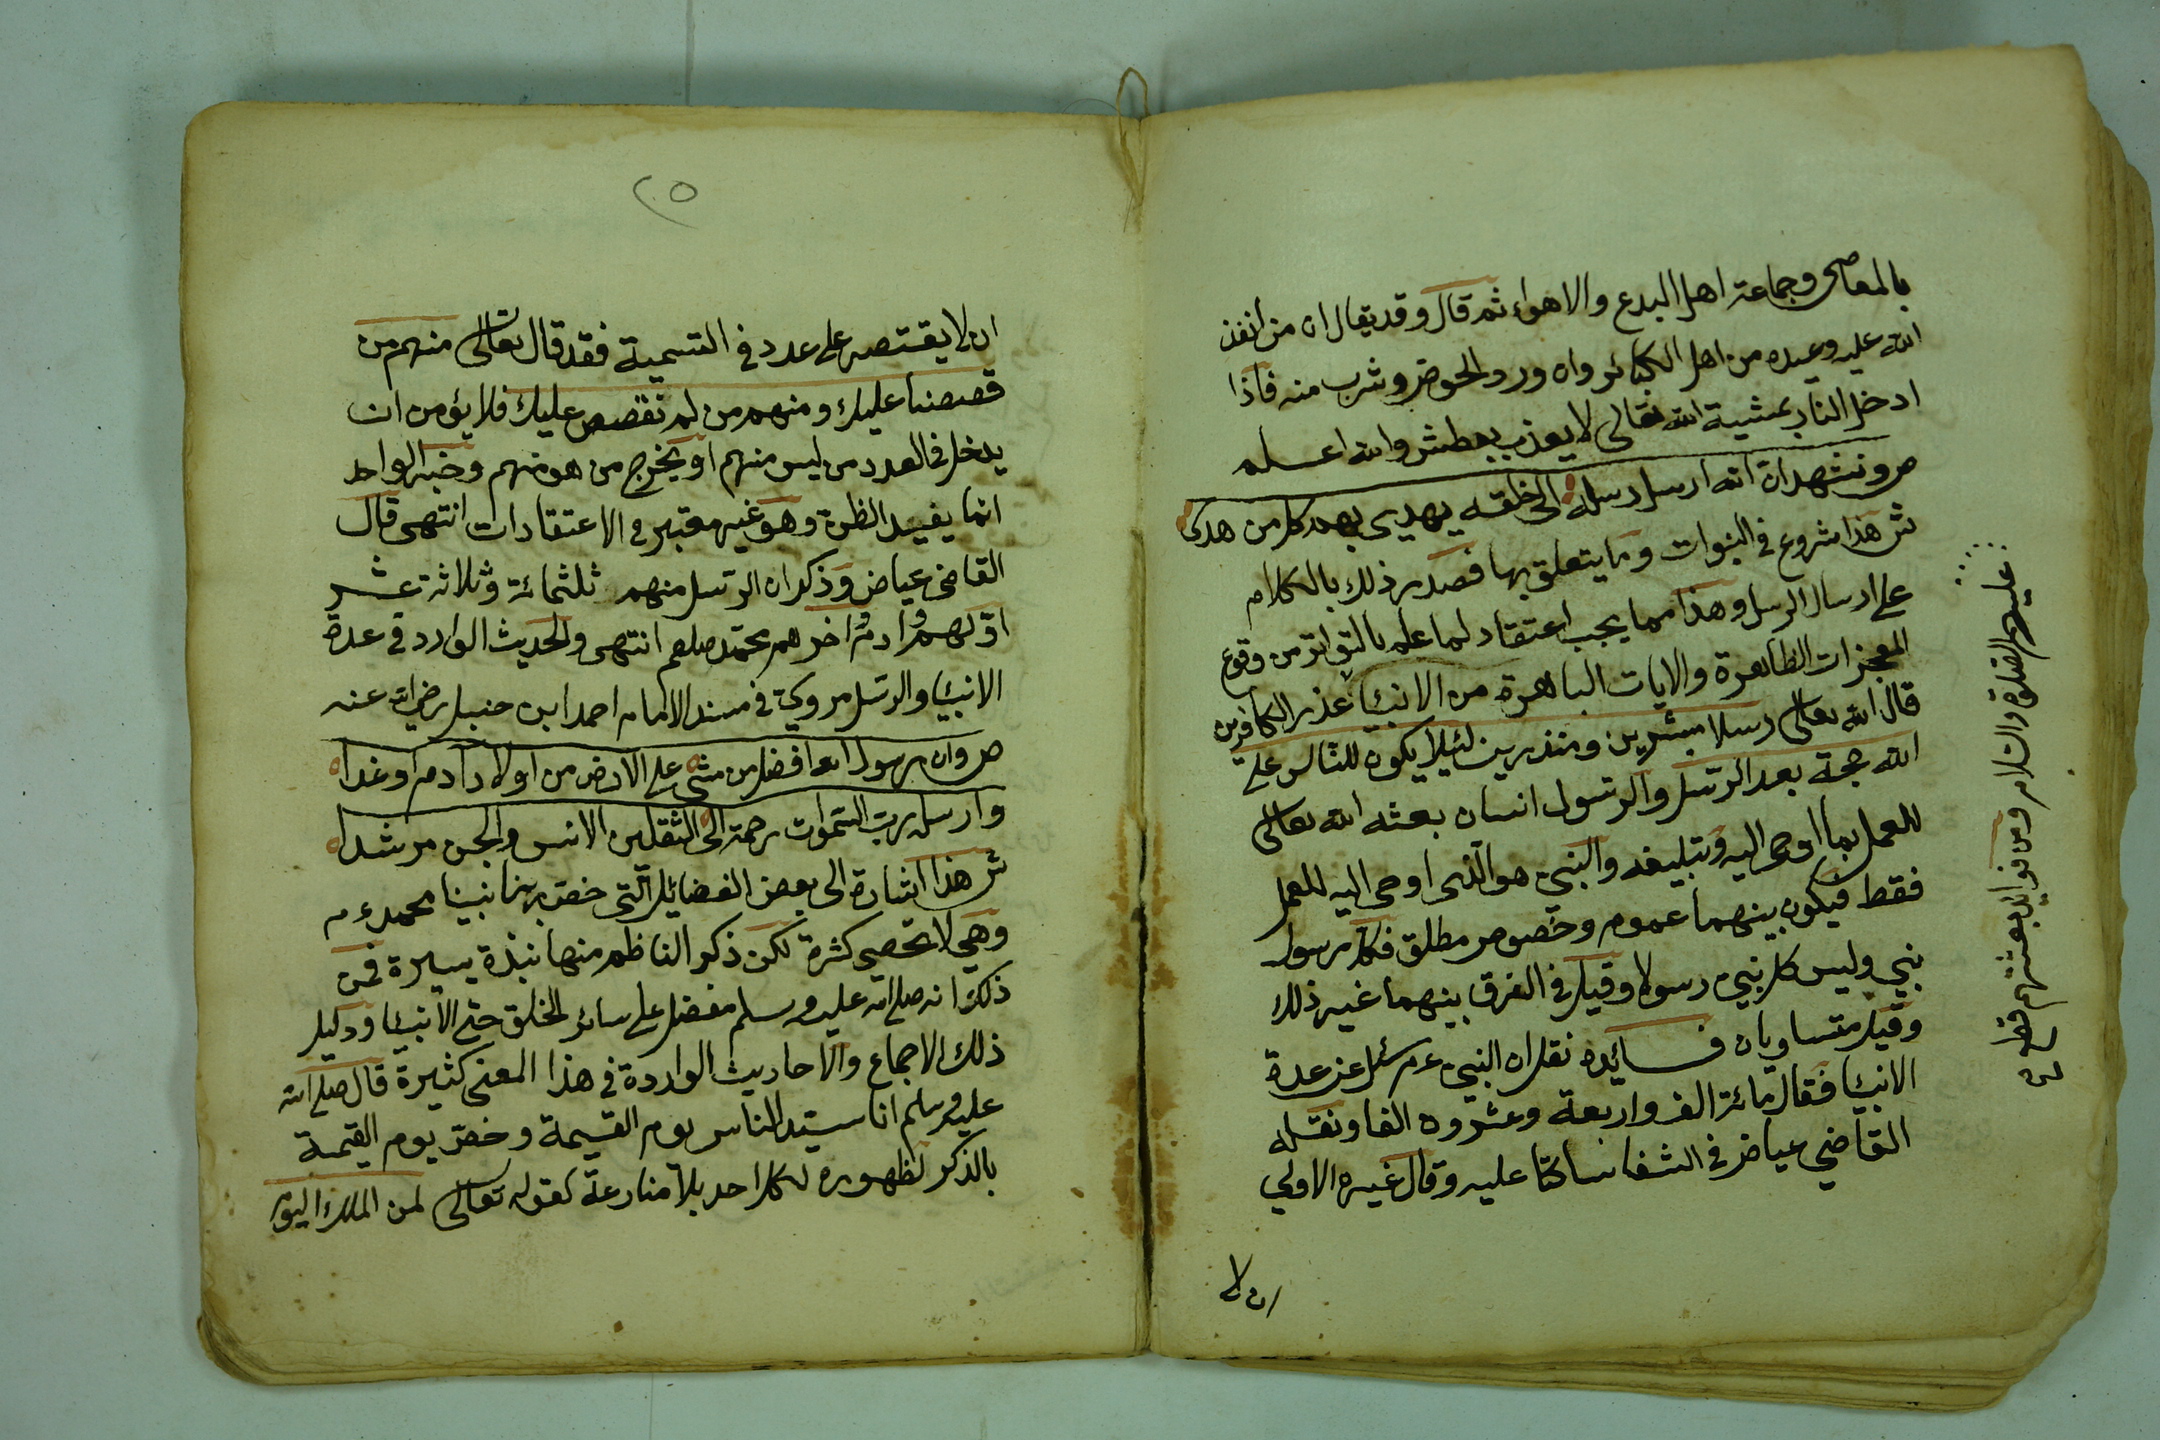 بالمعاصى وجماعة اهل البدع والاهواء ثم قال وقد يقال ان من انفذ
الله عليه وعيده من اهل الكبائر وان ورد الحوض وشرب منه فاذا
ادخل النار بمشية الله تعالى لا يعذب بعطش والله اعلم
ص ونشهد ان الله ارسل رسله الى خلقه يهدى بهم كل من هدى
ش هذا شروع فى النبوات وما يتعلق بها فصدر ذلك بالكلام
على ارسال الرسل وهذا مما يجب اعتقاد لما علم بالتواتر من وقوع
المعجزات الظاهرة والايات الباهرة من الانبيا عذر الكافرين
قال الله تعالى رسلا مبشرين ومنذرين لئيلا يكون للناس على
الله حجة بعد الرسل والرسول انسان بعثه الله تعالى
للعمل بما اوحى اليه وتبليغه والنبي هو الذى اوحى اليه للعمل
فقط فيكون بينهما عموم وخصوص مطلق فكل رسول
نبي وليس كل نبي رسولا وقيل في الفرق بينهما غير ذلك
وقيل متساويان فـائده نقل ان النبي ءم سئل عن عدة
الانبيا فقال مائة الف واربعة وعشرون الفا ونقله
القاضي عياض فى الشفا ساكتا عليه وقال غيره الاولي
ان لا
عليهم الصلوة والسلام ومن فوايد بعثتهم قطع
ه٢
ان لا يقتصر على عدد فى التسمية فقد قال تعالى منهم من
قصصنا عليك ومنهم من لم نقصص عليك فلا يؤمن ان
يدخل فى العدد من ليس منهم او يخرج من هو منهم وخبر الواحد
انما يفيد الظن وهو غير معتبر فى الاعتقادات انتهى قال
القاضى عياض وذكر ان الرسل منهم ثلثمائة وثلاثة عشر
اولهم ادم واخرهم محمد صلعم انتهى والحديث الوارد فى عدة
الانبيا والرسل مروي فى مسند الامام احمد ابن حنبل رضى الله عنه
ص وان رسول الله افضل من مشى على الارض من اولاد آدم او غدا
وارسله رب السموات رحمة الى الثقلين الانس والجن مرشدا
ش هذا اشارة الى بعض الفضائل التى خص بها نبينا محمد ءم
وهي لا تحصى كثرة لكن ذكر الناظم منها نبذة يسيرة فمن
ذلك انه صلى الله عليه وسلم مفضل على سائر الخلق حتى الانبيا ودليل
ذلك الاجماع والاحاديث الواردة فى هذا المعنى كثيرة قال صلى الله
عليه وسلم انا سيد الناس يوم القيمة وخص يوم القيمة
بالذكر لظهوره لكل احد بلا منازعة كقوله تعالى لمن الملك اليوم